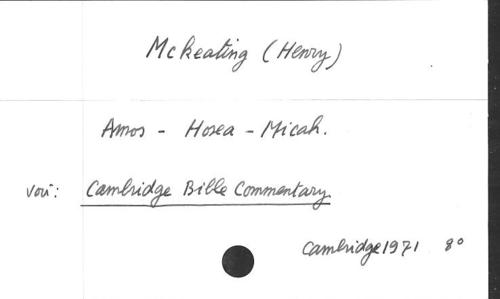 McKeating (Henry)
Amos - Hosea - Micah.
voir: Cambridge Bible Commentary
Cambridge 1971 8°